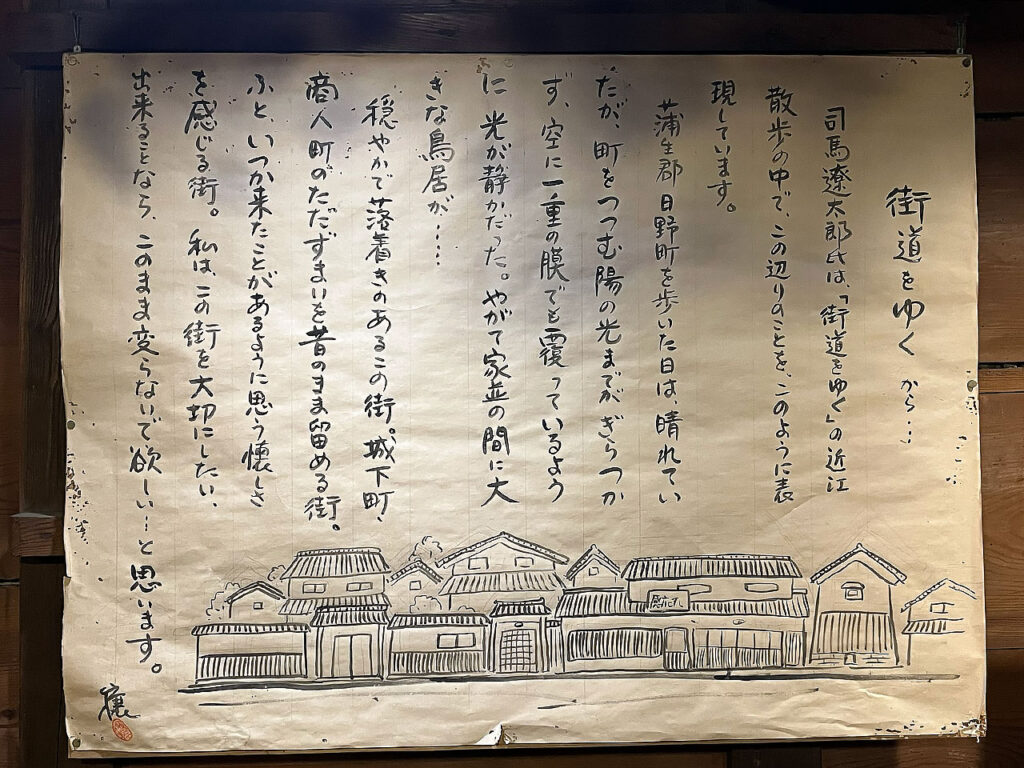 街道をゆく から…
司馬遼太郎氏は、「街道をゆく」の近江
散歩の中で、この辺りのことを、このように表
現しています。
蒲生郡日野町を歩いた日は、晴れてい
たが、町をつつむ陽の光までがぎらつか
ず、空に一重の膜でも覆っているよう
に光が静かだった。やがて家並の間に大
きな鳥居が……
穏やかで落着きのあるこの街。城下町、
商人町のただずまいを昔のまま留める街。
ふと、いつか来たことがあるように思う懐しさ
を感じる街。私は、この街を大切にしたい、
出来ることなら、このまま変らないで欲しい…と思います。